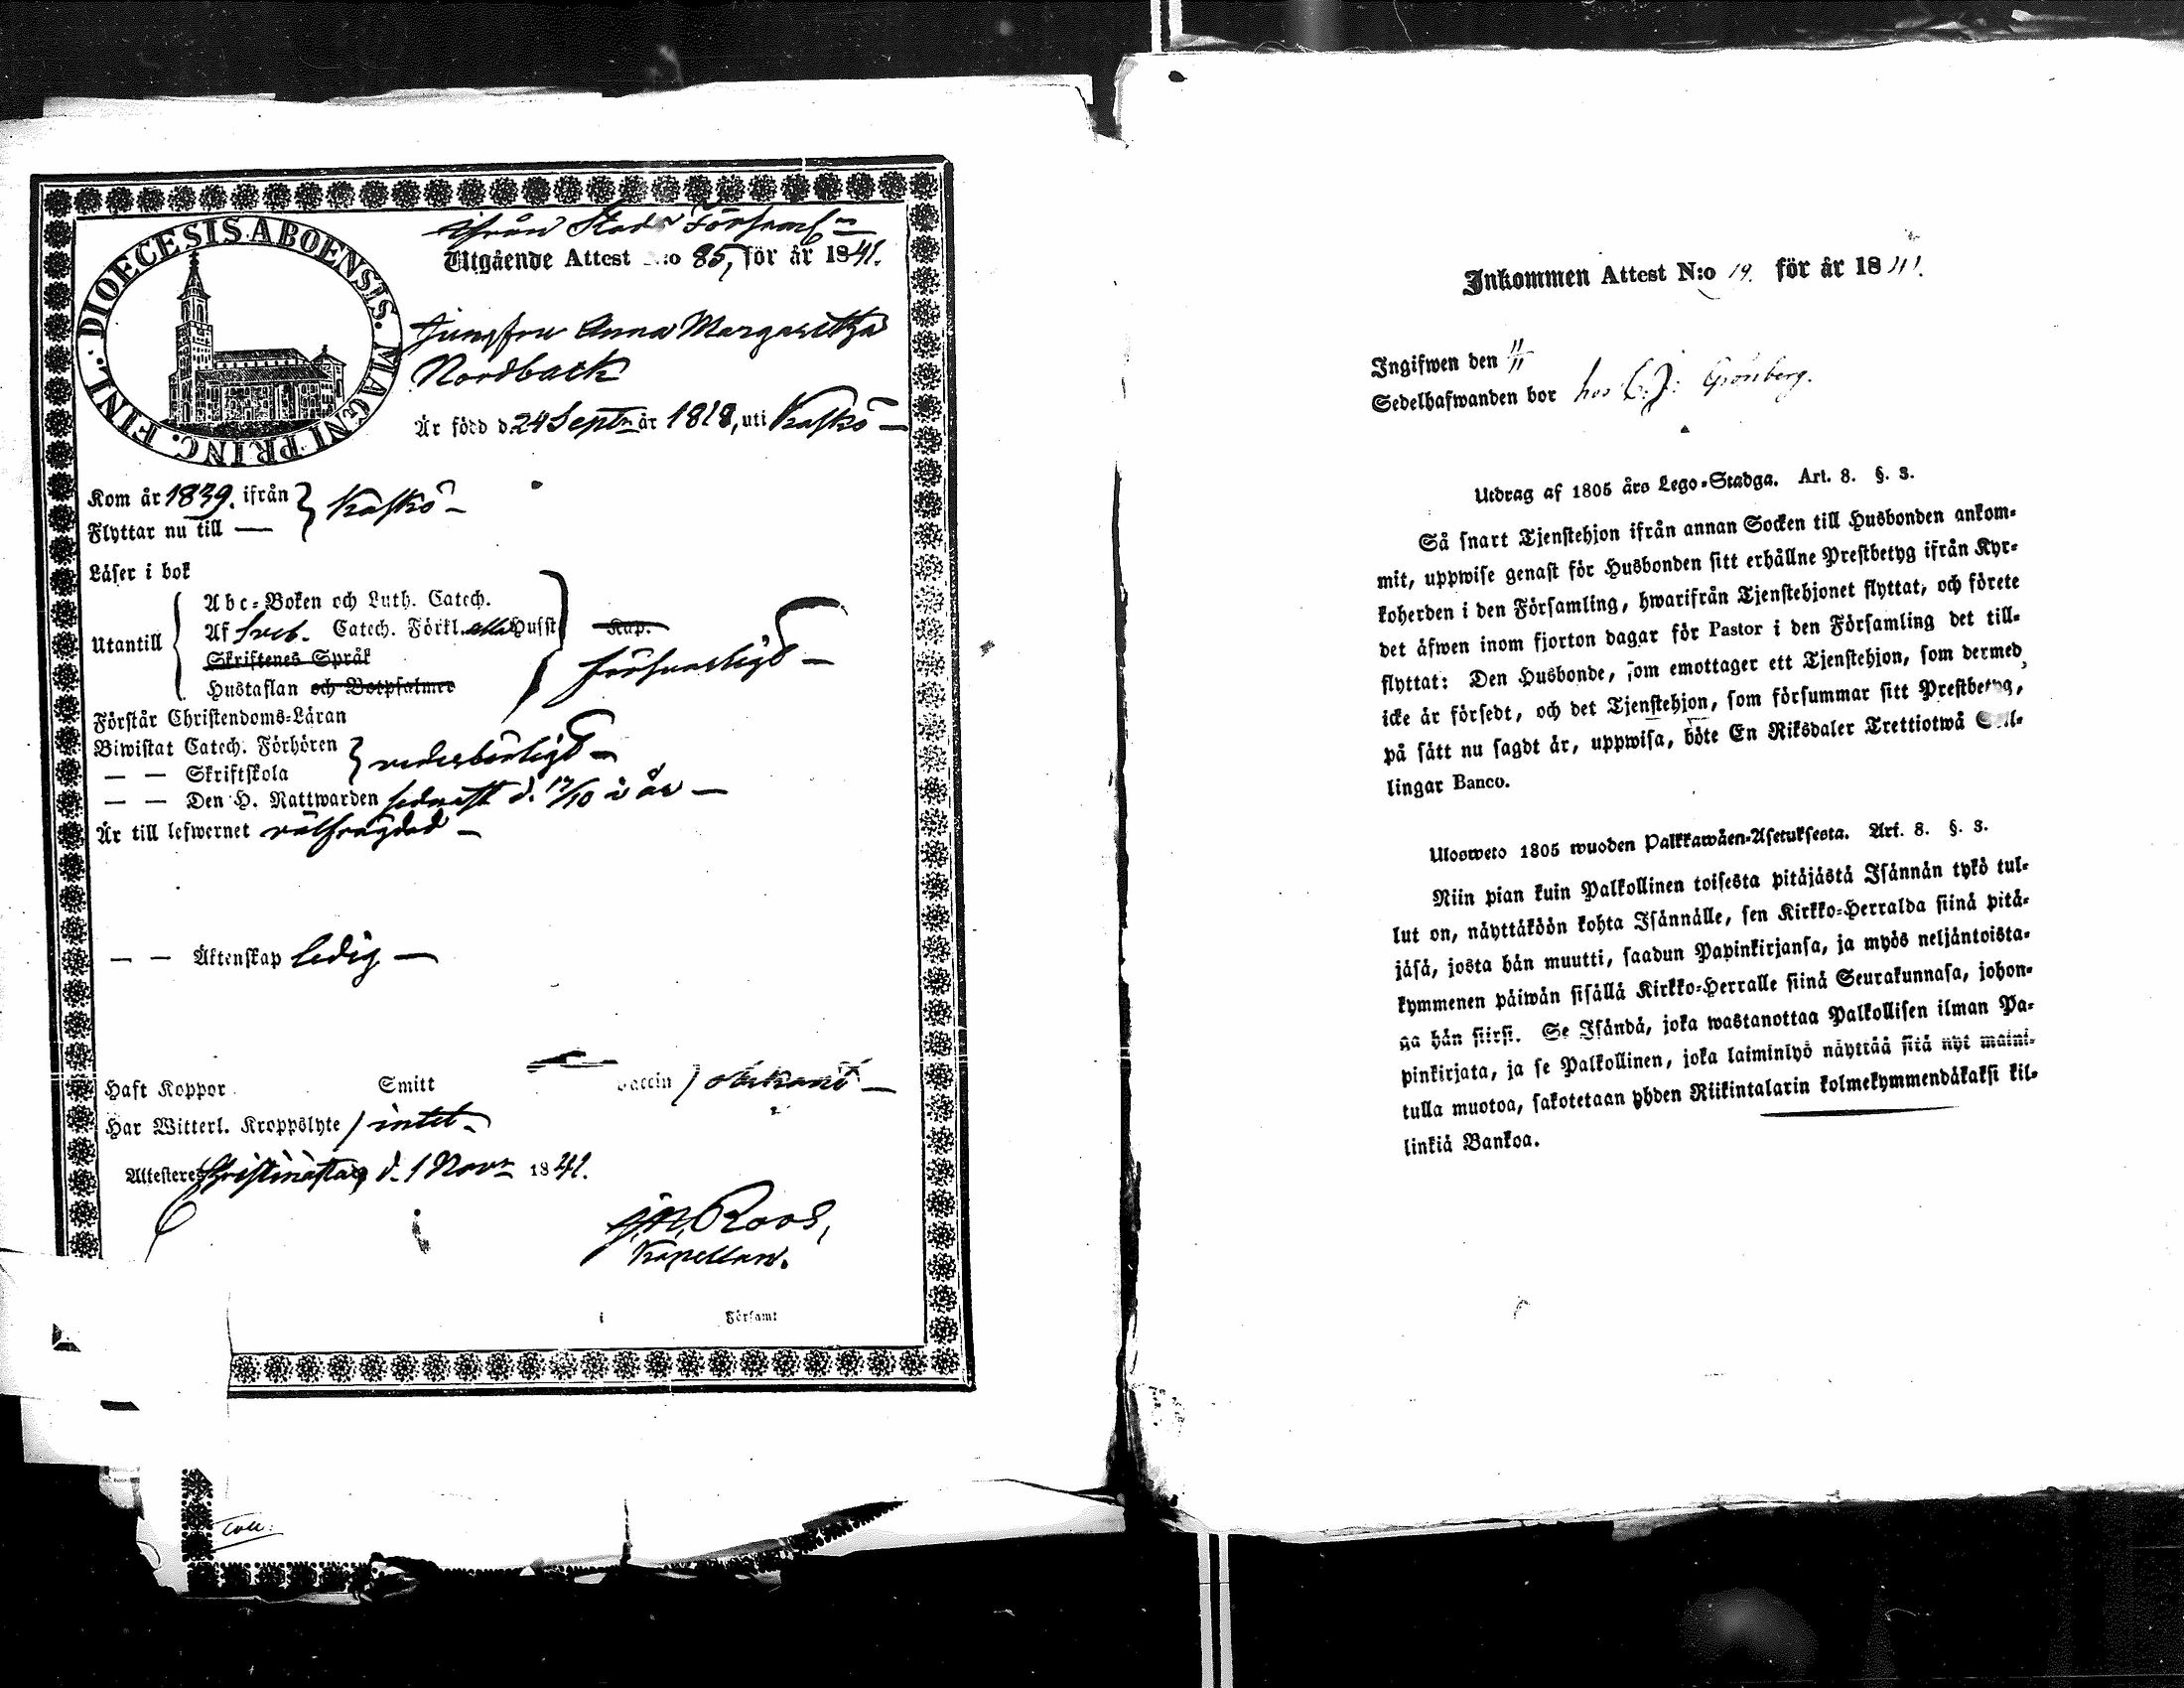 DIOECESIS ABOENSIS. MAGNI PRINC. FINL.
ifrån Stads Församl:n
Utgående Attest N:o 85, för år 1841.
Jungfru Anna Margaretha
Nordback
Är född d. 24 Septr år 1818, uti Kaskö
Kom år 1839. ifrån } Kaskö
Flyttar nu till —
Läser i bok
Utantill
Abc-Boken och Luth. Catech.
Af Sveb. Catech. Förkl. Husst Kap.
Skriftenes Språk
försvarligt
Hustaflan och Botpsalmer
Förstår Christendoms-Läran
Biwistat Catech. Förhören
wederbörligt
— — Skriftskola
— — Den H. Nattwarden sednast d. 17/10 i år
Är till lefwernet välfrägdad
— — Äktenskap ledig
Haft Koppor Smitt Vaccin
Har Witterl. Kroppslyte / intet
Attesterer Christinæstad d. 1 Novr 1841.
Roos,
Kapellan.
i Församl
Inkommen Attest N:o 19. för år 1841.
Ingifwen den 11/11
Sedelhafwanden bor hos C. J: Grönberg.
Utdrag af 1805 års Lego-Stadga. Art. 8. §. 3.
Så snart Tjenstehjon ifrån annan Socken till Husbonden ankom-
mit, uppwise genast för Husbonden sitt erhållne Prestbetyg ifrån Kyr-
koherden i den Församling, hwarifrån Tjenstehjonet flyttat, och förete
det äfwen inom fjorton dagar för Pastor i den Församling det till-
flyttat: Den Husbonde, som emottager ett Tjenstehjon, som dermed
icke är försedt, och det Tjenstehjon, som försummar sitt Prestbetyg,
på sätt nu sagdt är, uppwisa, böte En Riksdaler Trettiotwå Skil-
lingar Banco.
Ulosweto 1805 wuoden Palkkawäen-Asetuksesta. Art. 8. §. 3.
Niin pian kuin Palkollinen toisesta pitäjästä Isännän tykö tul-
lut on, näyttäköön kohta Isännälle, sen Kirkko-Herralda siinä pitä-
jäsä, josta hän muutti, saadun Papinkirjansa, ja myös neljäntoista-
kymmenen päiwän sisällä Kirkko-Herralle siinä Seurakunnasa, johon-
ga hän siirsi. Se Isändä, joka wastanottaa Palkollisen ilman Pa-
pinkirjata, ja se Palkollinen, joka laiminlyö näyttää sitä nyt maini-
tulla muotoa, sakotetaan yhden Riikintalarin kolmekymmendäkaksi kil-
linkiä Bankoa.